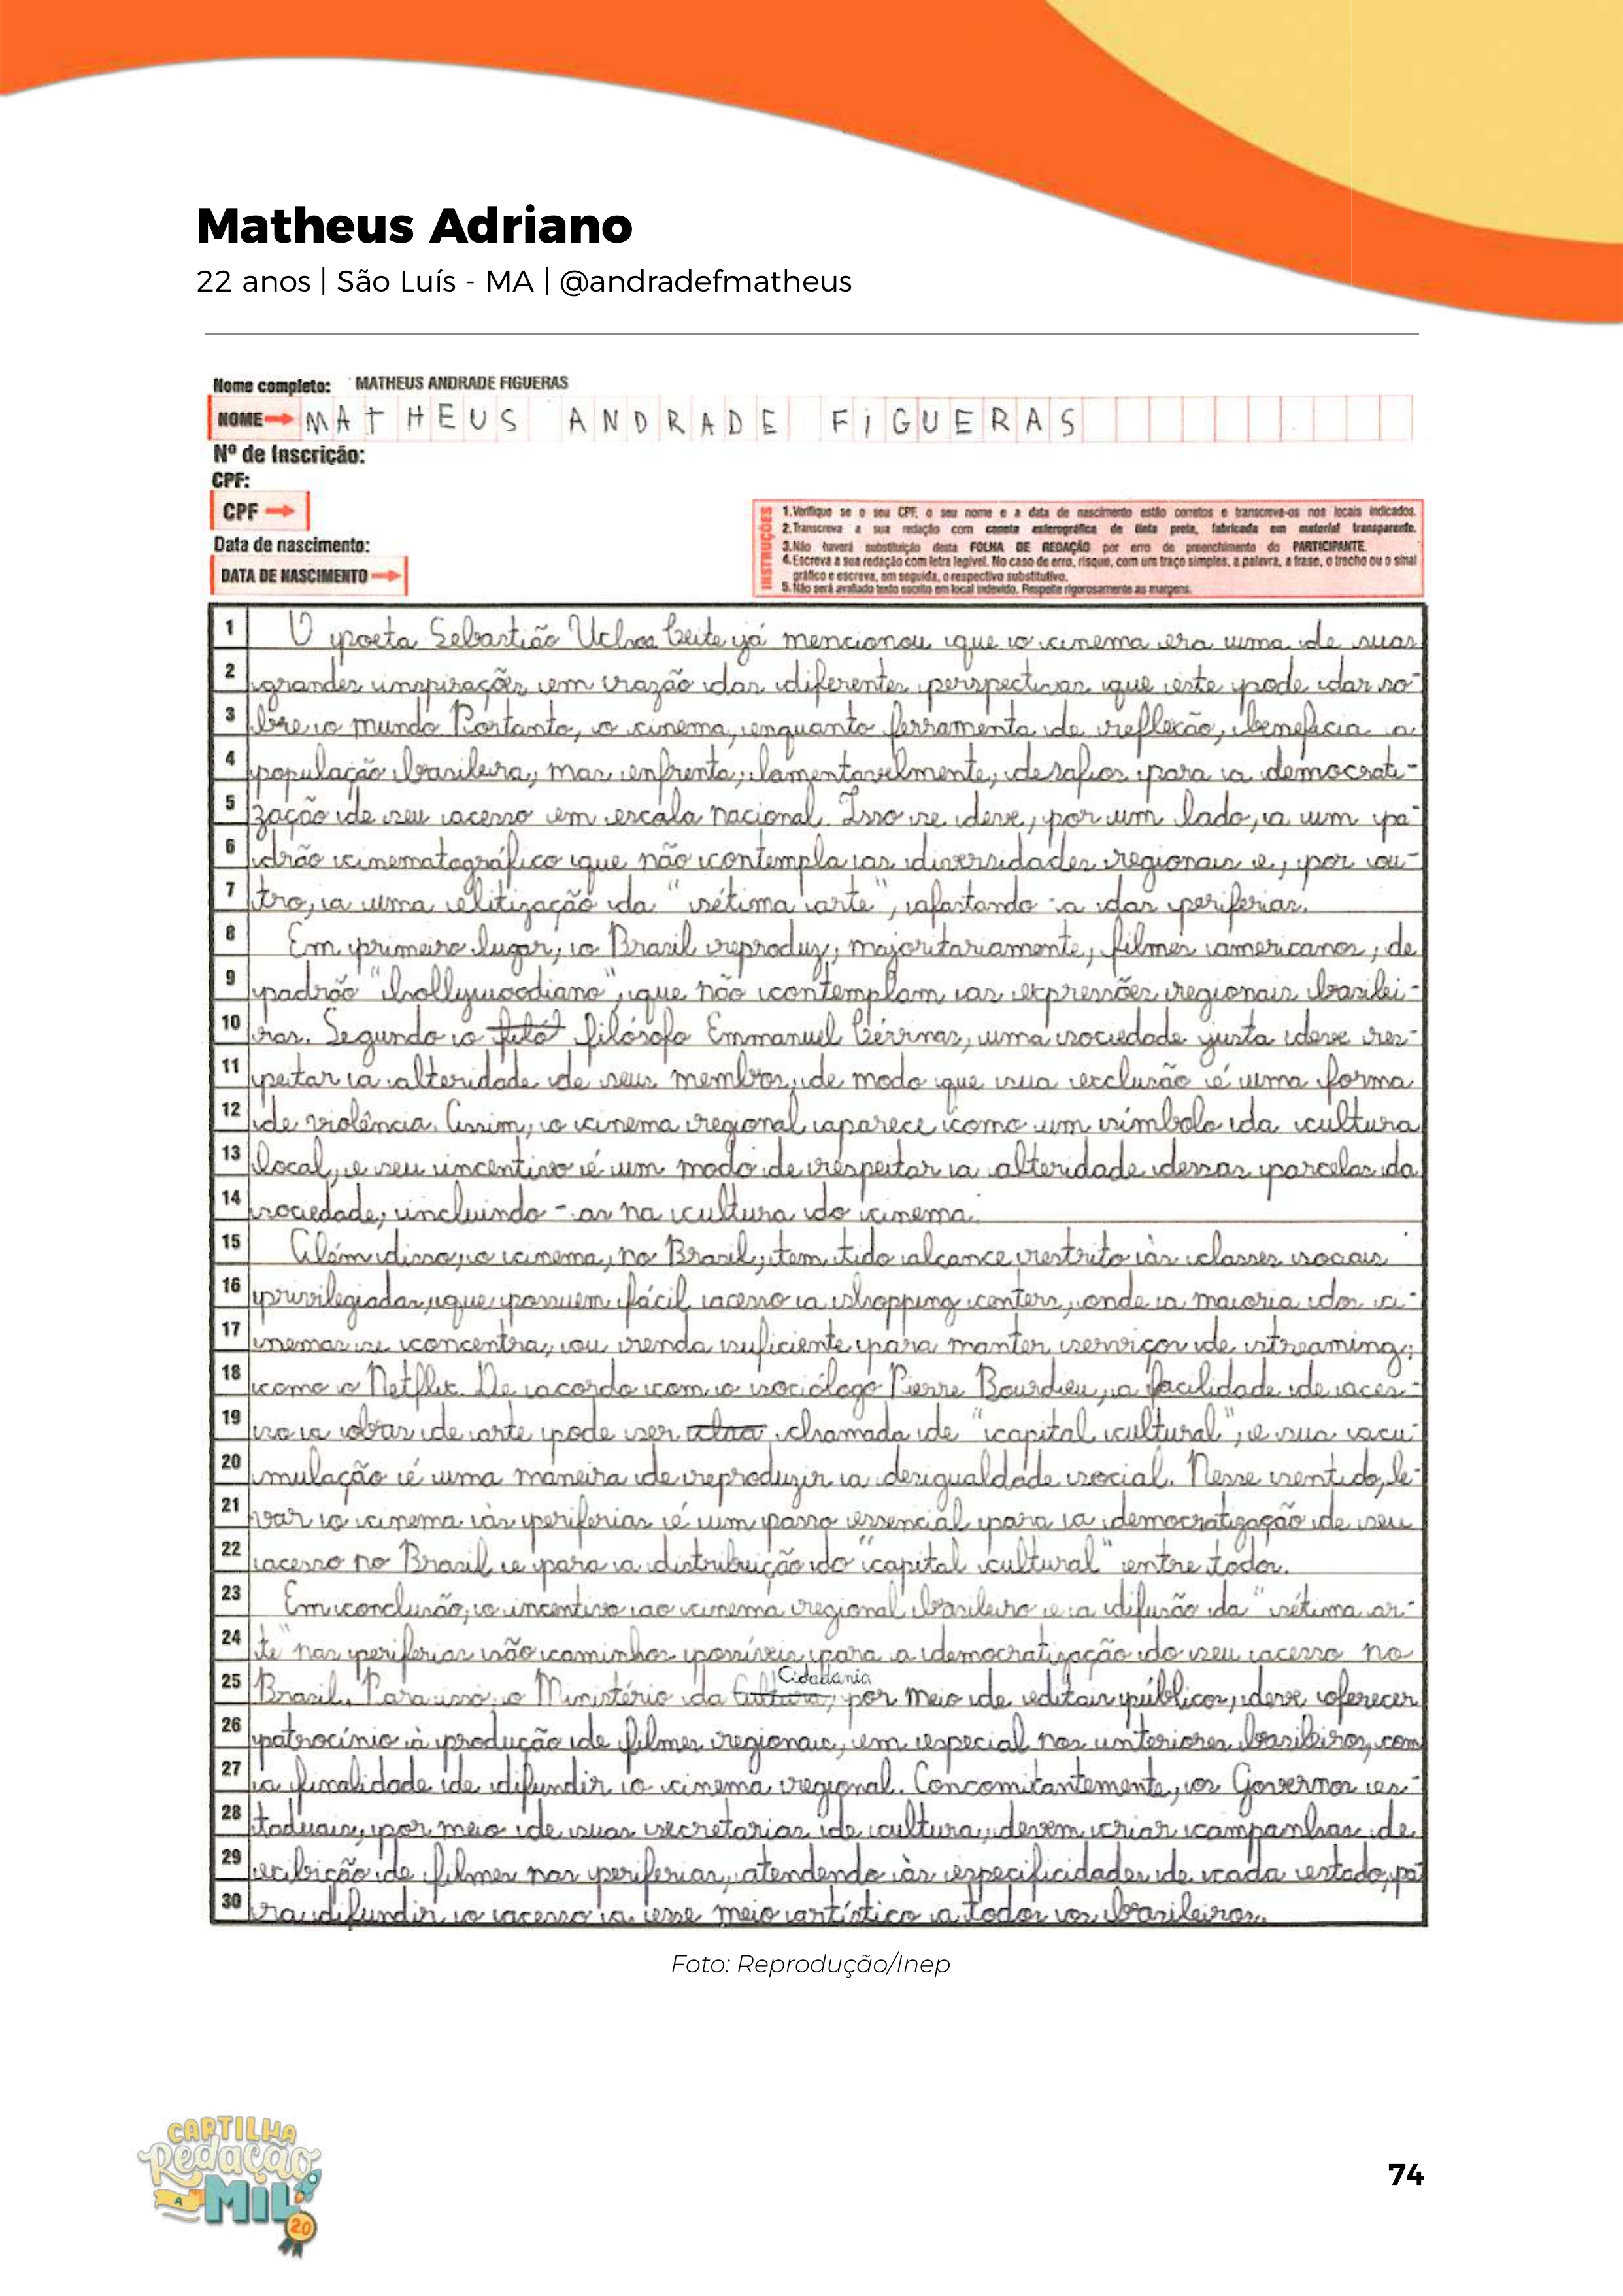 Matheus Adriano
22 anos | São Luís - MA | @andradefmatheus
Nome completo: MATHEUS ANDRADE FIGUERAS
NOME MATHEUS ANDRADE FIGUERAS
Nº de Inscrição:
CPF:
CPF
Data de nascimento:
DATA DE NASCIMENTO
INSTRUÇÕES
1. Verifique se o seu CPF, o seu nome e a data de nascimento estão corretos e transcreva-os nos locais indicados.
2. Transcreva a sua redação com caneta esferográfica de tinta preta, fabricada em material transparente.
3. Não haverá substituição desta FOLHA DE REDAÇÃO por erro de preenchimento do PARTICIPANTE.
4. Escreva a sua redação com letra legível. No caso de erro, risque, com um traço simples, a palavra, a frase, o trecho ou o sinal
gráfico e escreva, em seguida, o respectivo substitutivo.
5. Não será avaliado texto escrito em local indevido. Respeite rigorosamente as margens.
1 O poeta Sebastião Uchoa Leite já mencionou que o cinema era uma de suas
2 grandes inspirações em razão das diferentes perspectivas que este pode dar so-
3 bre o mundo. Portanto, o cinema, enquanto ferramenta de reflexão, beneficia a
4 população brasileira, mas enfrenta, lamentavelmente, desafios para a democrati-
5 zação de seu acesso em escala nacional. Isso se deve, por um lado, a um pa-
6 drão cinematográfico que não contempla as diversidades regionais e, por ou-
7 tro, a uma elitização da "sétima arte", afastando-a das periferias.
8 Em primeiro lugar, o Brasil reproduz, majoritariamente, filmes americanos, de
9 padrão "hollywoodiano", que não contemplam as expressões regionais brasilei-
10 ras. Segundo o filósofo Emmanuel Lévinas, uma sociedade justa deve res-
11 peitar a alteridade de seus membros, de modo que sua exclusão é uma forma
12 de violência. Assim, o cinema regional aparece como um símbolo da cultura
13 local, e seu incentivo é um modo de respeitar a alteridade dessas parcelas da
14 sociedade, incluindo-as na cultura do cinema.
15 Além disso, o cinema, no Brasil, tem tido alcance restrito às classes sociais
16 privilegiadas, que possuem fácil acesso a shopping centers, onde a maioria dos ci-
17 nemas se concentra, ou renda suficiente para manter serviços de streaming,
18 como o Netflix. De acordo com o sociólogo Pierre Bourdieu, a facilidade de aces-
19 so a obras de arte pode ser chamada de "capital cultural", e sua acu-
20 mulação é uma maneira de reproduzir a desigualdade social. Nesse sentido, le-
21 var o cinema às periferias é um passo essencial para a democratização de seu
22 acesso no Brasil e para a distribuição do "capital cultural" entre todos.
23 Em conclusão, o incentivo ao cinema regional brasileiro e a difusão da "sétima ar-
24 te" nas periferias são caminhos possíveis para a democratização do seu acesso no
25 Brasil. Para isso, o Ministério da Cultura, Cidadania por meio de editais públicos, deve oferecer
26 patrocínio à produção de filmes regionais, em especial nos interiores brasileiros, com
27 a finalidade de difundir o cinema regional. Concomitantemente, os Governos es-
28 taduais, por meio de suas secretarias de cultura, devem criar campanhas de
29 exibição de filmes nas periferias, atendendo às especificidades de cada estado, pa-
30 ra difundir o acesso a esse meio artístico a todos os brasileiros.
Foto: Reprodução/Inep
CARTILHA
Redação
A MIL
20
74